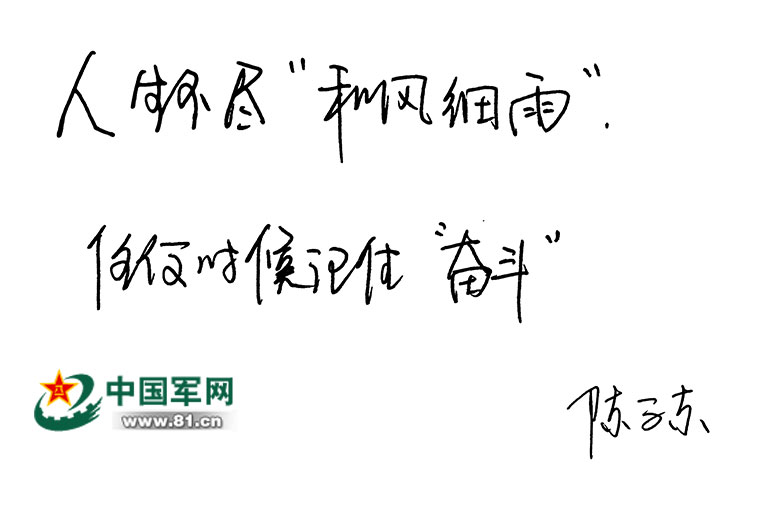 人生不尽“和风细雨”.
任何时候记住“奋斗”
中国军网
www.81.cn
陈子东